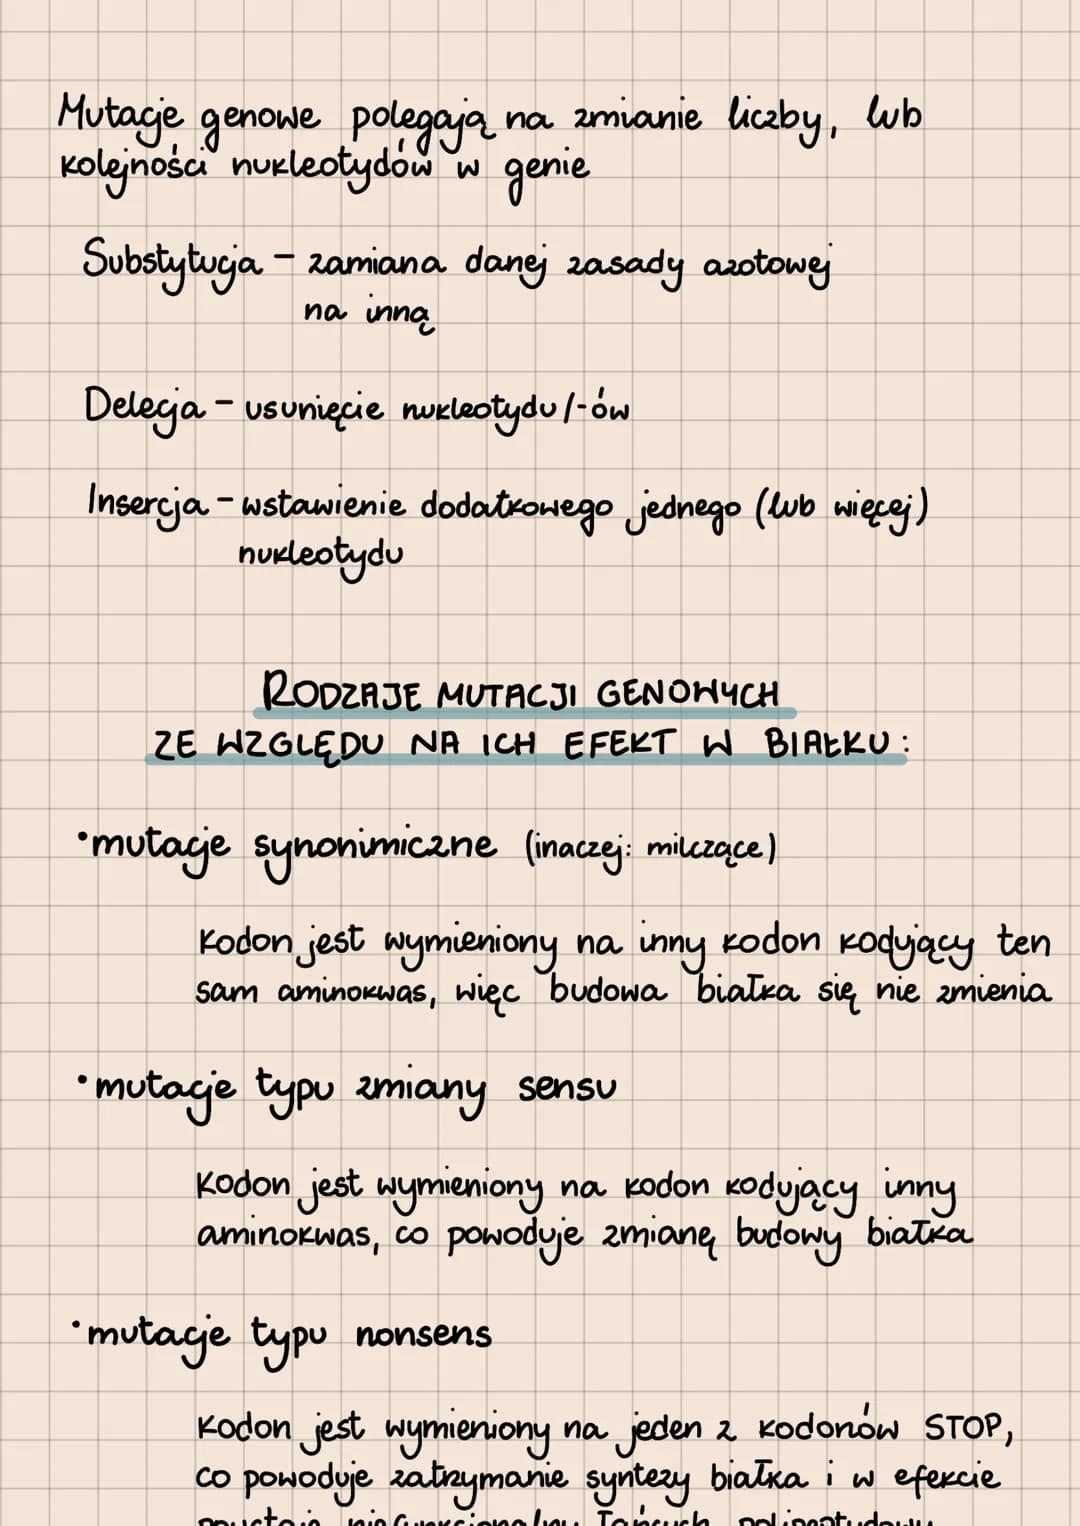 Mutacje genowe polegają na zmianie liczby, lub
kolejności nukleotydów w genie
Substytucja - zamiana danej zasady azotowej
na inną
Delecja - usunięcie nukleotydu/-ów
Insercja - wstawienie dodatkowego jednego (lub więcej)
nukleotydu
RODZAJE MUTACJI GENOWYCH
ZE WZGLĘDU NA ICH EFEKT W BIAŁKU:
•mutacje synonimiczne (inaczej: milczące)
Kodon jest wymieniony na inny kodon kodujący ten
sam aminokwas, więc budowa białka się nie zmienia
•mutacje typu zmiany sensu
Kodon jest wymieniony na kodon kodujący inny
aminokwas, co powoduje zmianę budowy białka
•mutacje typu nonsens
Kodon jest wymieniony na jeden z kodonów STOP,
co powoduje zatrzymanie syntezy białka i w efekcie
powstaje niefunkcjonalny łańcuch polipeptydowy